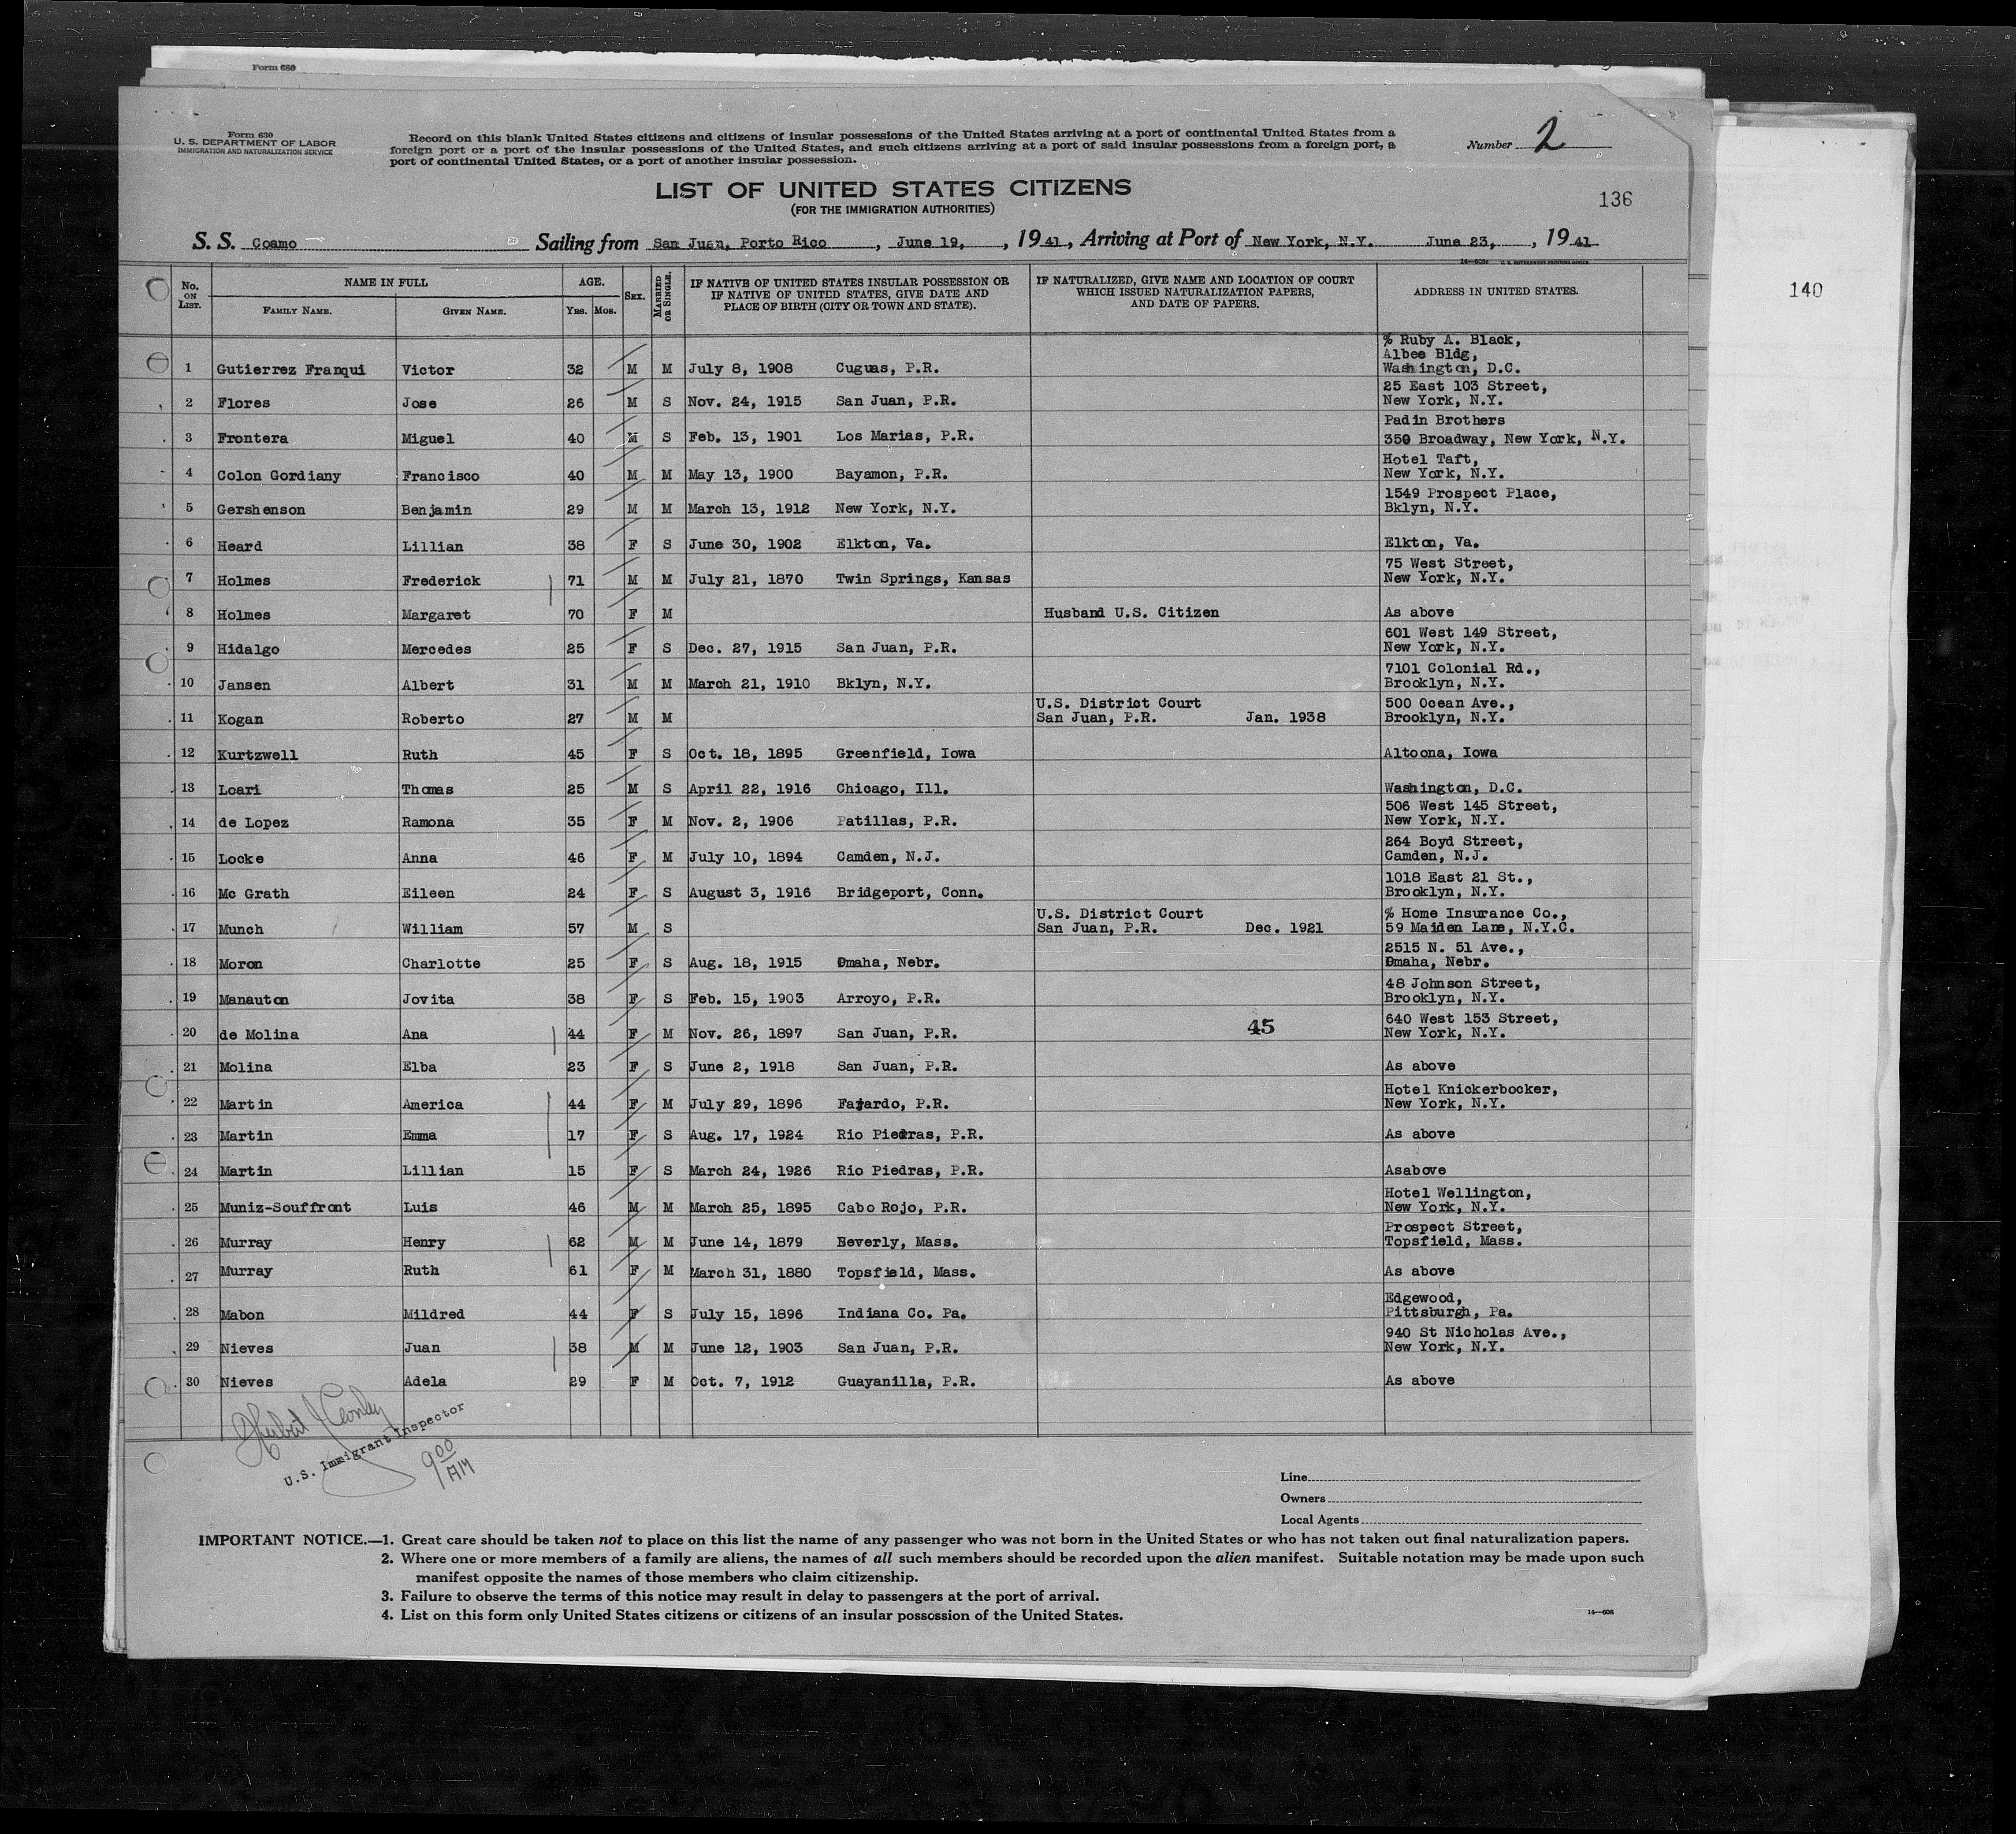 Form 680
Form 630
U. S. DEPARTMENT OF LABOR
IMMIGRATION AND NATURALIZATION SERVICE
Record on this blank United States citizens and citizens of insular possessions of the United States arriving at a port of continental United States from a
foreign port or a port of the insular possessions of the United States, and such citizens arriving at a port of said insular possessions from a foreign port, a
port of continental United States, or a port of another insular possession.
Number 2
LIST OF UNITED STATES CITIZENS
(FOR THE IMMIGRATION AUTHORITIES)
136
S. S. Coamo Sailing from San Juan, Porto Rico, June 19, 1941, Arriving at Port of New York, N.Y. June 23, 1941
140
No. ON LIST. NAME IN FULL AGE. SEX. MARRIED OR SINGLE. IF NATIVE OF UNITED STATES INSULAR POSSESSION OR IF NATIVE OF UNITED STATES, GIVE DATE AND PLACE OF BIRTH (CITY OR TOWN AND STATE). IF NATURALIZED, GIVE NAME AND LOCATION OF COURT WHICH ISSUED NATURALIZATION PAPERS, AND DATE OF PAPERS. ADDRESS IN UNITED STATES.
FAMILY NAME. GIVEN NAME. YRS. MOS.
% Ruby A. Black,
Albee Bldg,
1 Gutierrez Franqui Victor 32 M M July 8, 1908 Cuguas, P.R. Washington, D.C.
25 East 103 Street,
2 Flores Jose 26 M S Nov. 24, 1915 San Juan, P.R. New York, N.Y.
Padin Brothers
3 Frontera Miguel 40 M S Feb. 13, 1901 Los Marias, P.R. 350 Broadway, New York, N.Y.
Hotel Taft,
4 Colon Gordiany Francisco 40 M M May 13, 1900 Bayamon, P.R. New York, N.Y.
1549 Prospect Place,
5 Gershenson Benjamin 29 M M March 13, 1912 New York, N.Y. Bklyn, N.Y.
6 Heard Lillian 38 F S June 30, 1902 Elkton, Va. Elkton, Va.
75 West Street,
7 Holmes Frederick 71 M M July 21, 1870 Twin Springs, Kansas New York, N.Y.
8 Holmes Margaret 70 F M Husband U.S. Citizen As above
601 West 149 Street,
9 Hidalgo Mercedes 25 F S Dec. 27, 1915 San Juan, P.R. New York, N.Y.
7101 Colonial Rd.,
10 Jansen Albert 31 M M March 21, 1910 Bklyn, N.Y. Brooklyn, N.Y.
U.S. District Court 500 Ocean Ave.,
11 Kogan Roberto 27 M M San Juan, P.R. Jan. 1938 Brooklyn, N.Y.
12 Kurtzwell Ruth 45 F S Oct. 18, 1895 Greenfield, Iowa Altoona, Iowa
13 Loari Thomas 25 M S April 22, 1916 Chicago, Ill. Washington, D.C.
506 West 145 Street,
14 de Lopez Ramona 35 F M Nov. 2, 1906 Patillas, P.R. New York, N.Y.
264 Boyd Street,
15 Locke Anna 46 F M July 10, 1894 Camden, N.J. Camden, N.J.
1018 East 21 St.,
16 Mc Grath Eileen 24 F S August 3, 1916 Bridgeport, Conn. Brooklyn, N.Y.
U.S. District Court % Home Insurance Co.,
17 Munch William 57 M S San Juan, P.R. Dec. 1921 59 Maiden Lane, N.Y.C.
2515 N. 51 Ave.,
18 Moron Charlotte 25 F S Aug. 18, 1915 Omaha, Nebr. Omaha, Nebr.
48 Johnson Street,
19 Manauton Jovita 38 F S Feb. 15, 1903 Arroyo, P.R. Brooklyn, N.Y.
45 640 West 153 Street,
20 de Molina Ana 44 F M Nov. 26, 1897 San Juan, P.R. New York, N.Y.
21 Molina Elba 23 F S June 2, 1918 San Juan, P.R. As above
Hotel Knickerbocker,
22 Martin America 44 F M July 29, 1896 Fajardo, P.R. New York, N.Y.
23 Martin Emma 17 F S Aug. 17, 1924 Rio Piedras, P.R. As above
24 Martin Lillian 15 F S March 24, 1926 Rio Piedras, P.R. Asabove
Hotel Wellington,
25 Muniz-Souffront Luis 46 M M March 25, 1895 Cabo Rojo, P.R. New York, N.Y.
Prospect Street,
26 Murray Henry 62 M M June 14, 1879 Beverly, Mass. Topsfield, Mass.
27 Murray Ruth 61 F M March 31, 1880 Topsfield, Mass. As above
Edgewood,
28 Mabon Mildred 44 F S July 15, 1896 Indiana Co. Pa. Pittsburgh, Pa.
940 St Nicholas Ave.,
29 Nieves Juan 38 M M June 12, 1903 San Juan, P.R. New York, N.Y.
30 Nieves Adela 29 F M Oct. 7, 1912 Guayanilla, P.R. As above
U.S. Immigrant Inspector
9 00 AM
Line
Owners
Local Agents
IMPORTANT NOTICE.—1. Great care should be taken not to place on this list the name of any passenger who was not born in the United States or who has not taken out final naturalization papers.
2. Where one or more members of a family are aliens, the names of all such members should be recorded upon the alien manifest. Suitable notation may be made upon such
manifest opposite the names of those members who claim citizenship.
3. Failure to observe the terms of this notice may result in delay to passengers at the port of arrival.
4. List on this form only United States citizens or citizens of an insular possession of the United States.
14—608